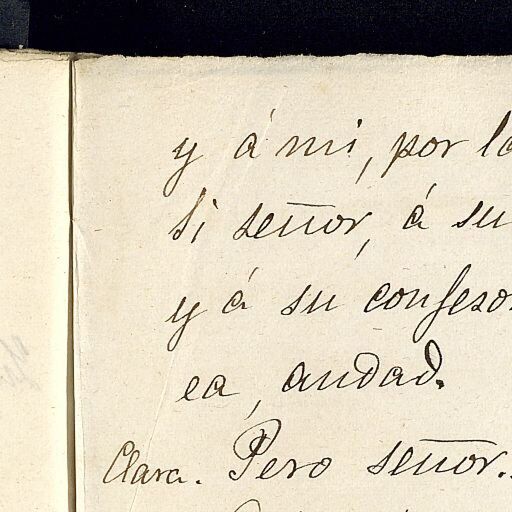 y á mi, por la
Si señor, á su
y á su confesor
ea, andad.
Clara. Pero señor..